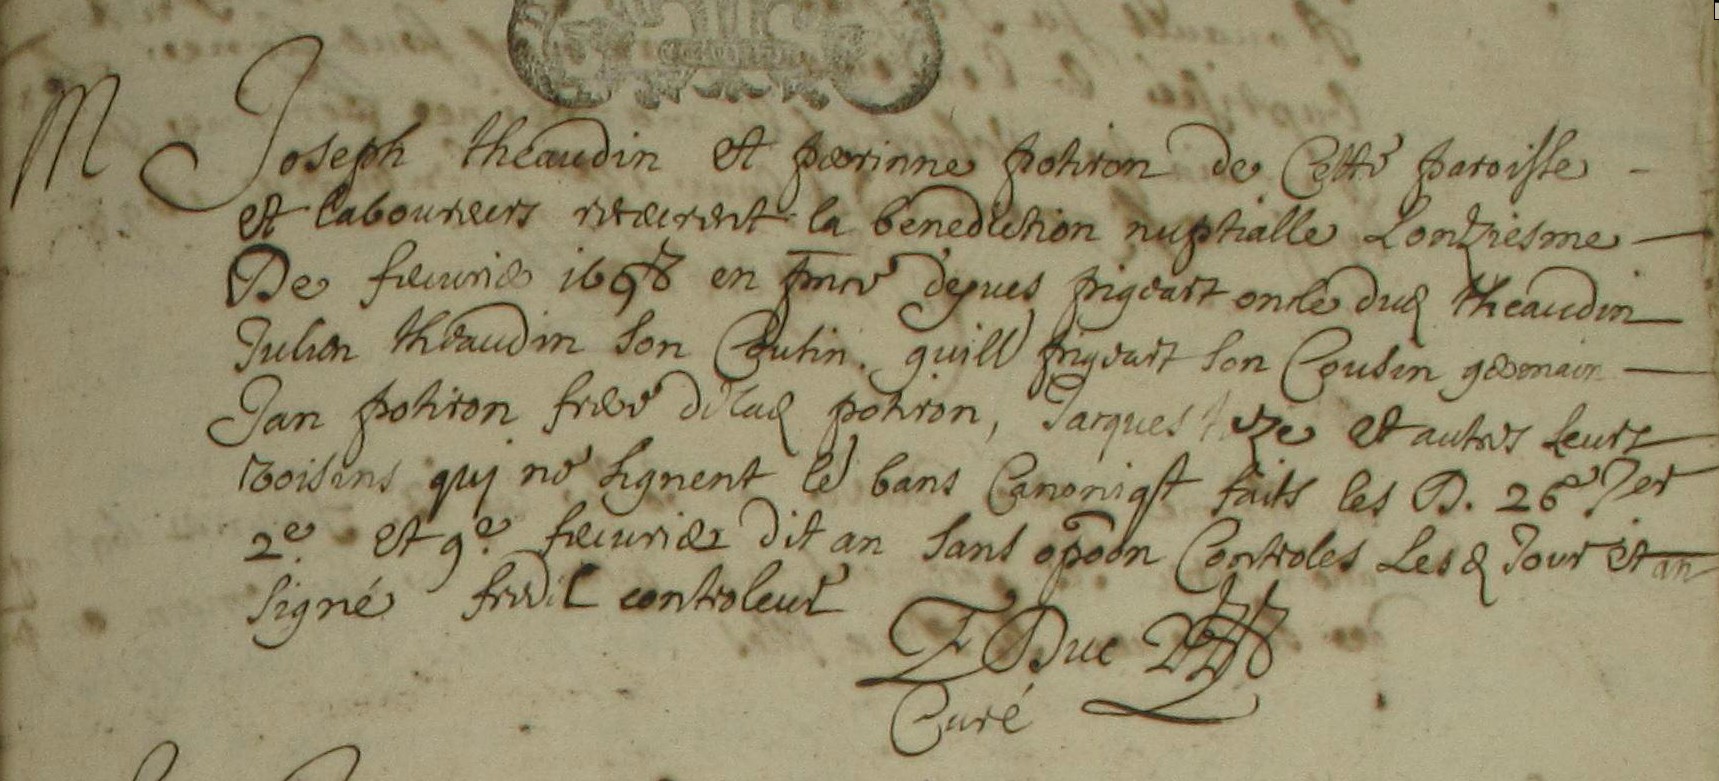 M Joseph theaudin et perrinne potiron de Cette paroisse
et laboureurs receurent la benediction nuptialle Lonziesme
De feuurier 1698 en pnce deques pigeart oncle dud theaudin
Julien theaudin son Cousin. guill pigeart son Cousin germain
Jan potiron frere dilad potiron, Jacques et autres leurs
voisins qui ne signent le bans Canoniqt faits les D. 26e Jer
2e et 9e feuurier dit an sans opoon Controles Lesd Jour et an
signé controleur
F Duc
Curé